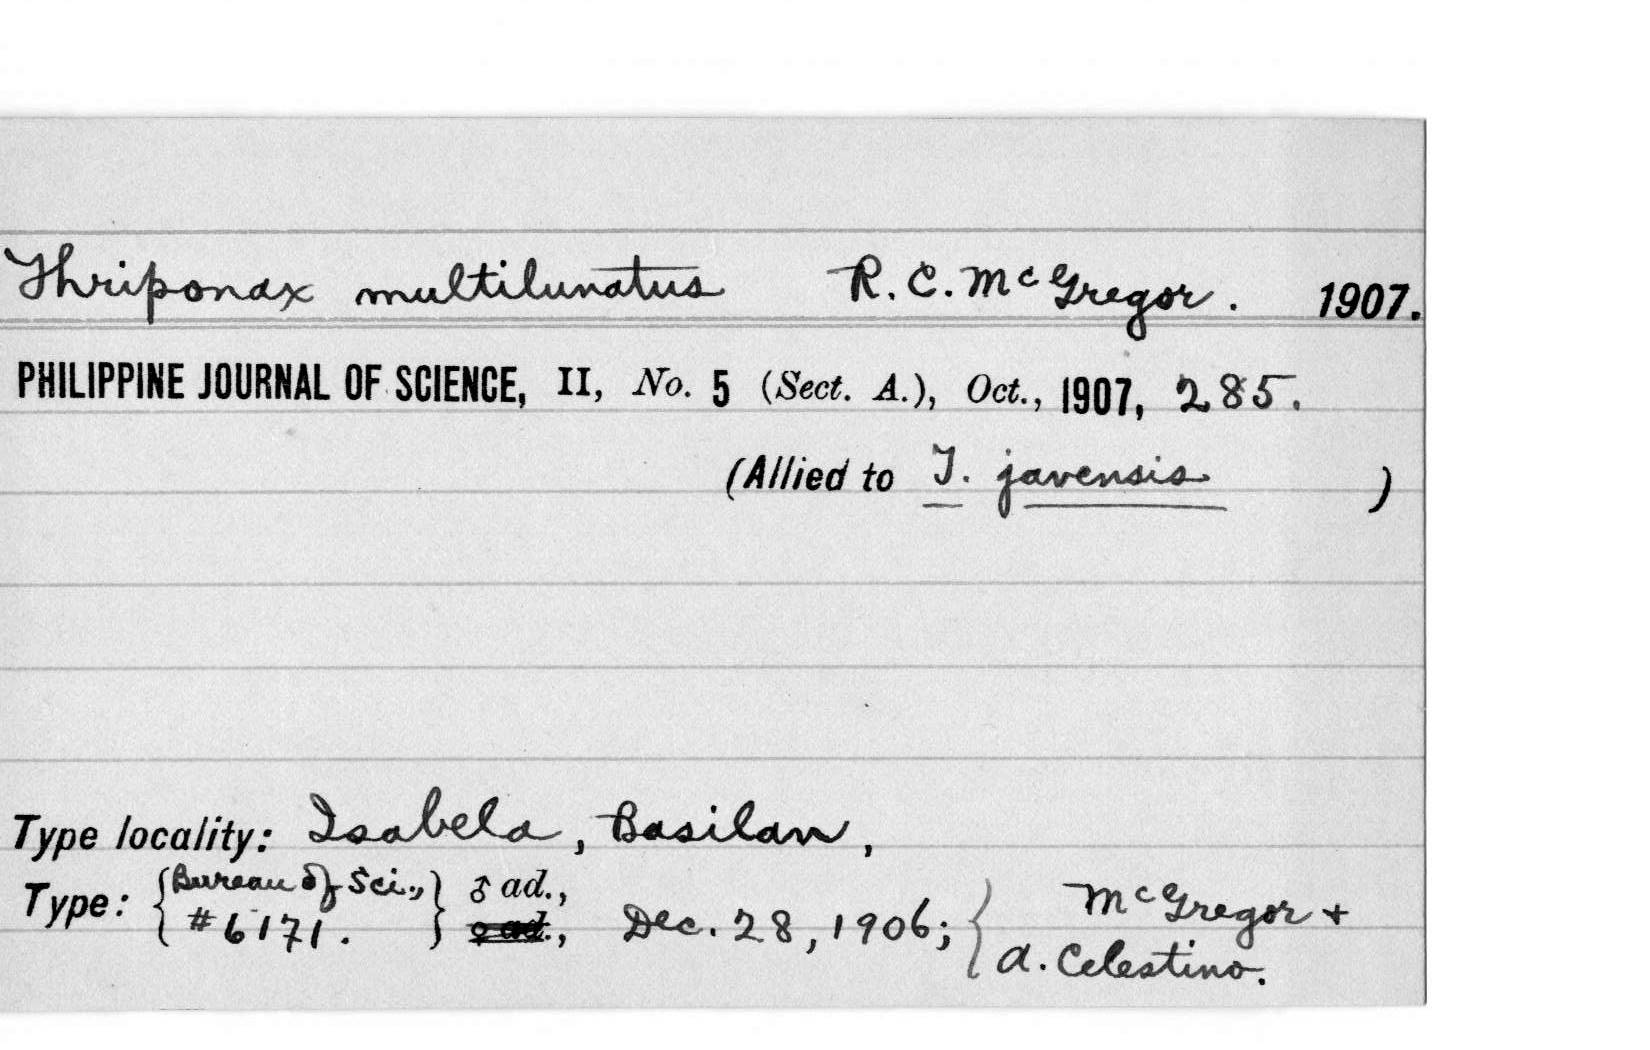 Thriponax multilunatus R. C. McGregor. 1907.
PHILIPPINE JOURNAL OF SCIENCE, II, No. 5 (Sect. A.), Oct., 1907, 285.
(Allied to T. javensis )
Type locality: Isabela, Basilan,
Type: {Bureau of Sci., #6171.} ♂ ad., ♀ ad., Dec. 28, 1906; {McGregor + A. Celestino.